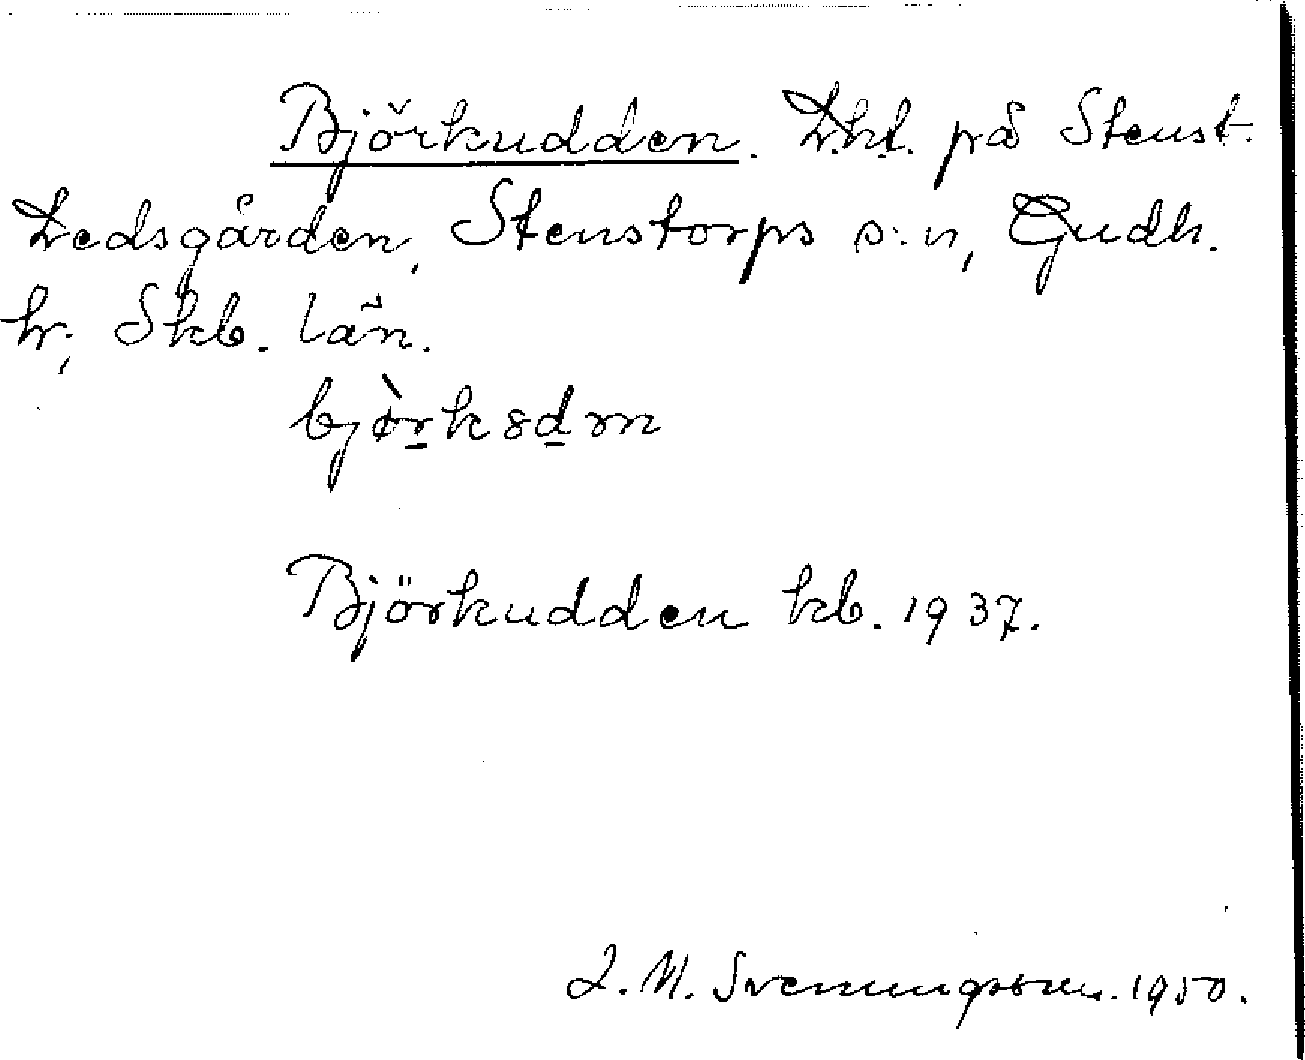 Björkudden. Lht. på Stenst.
Ledsgården, Stenstorps s:n, Gudh.
hr, Skb. län.
bjò̱rk8ḏm
Björkudden kb. 1937.
I. M. Svenungsson. 1950.